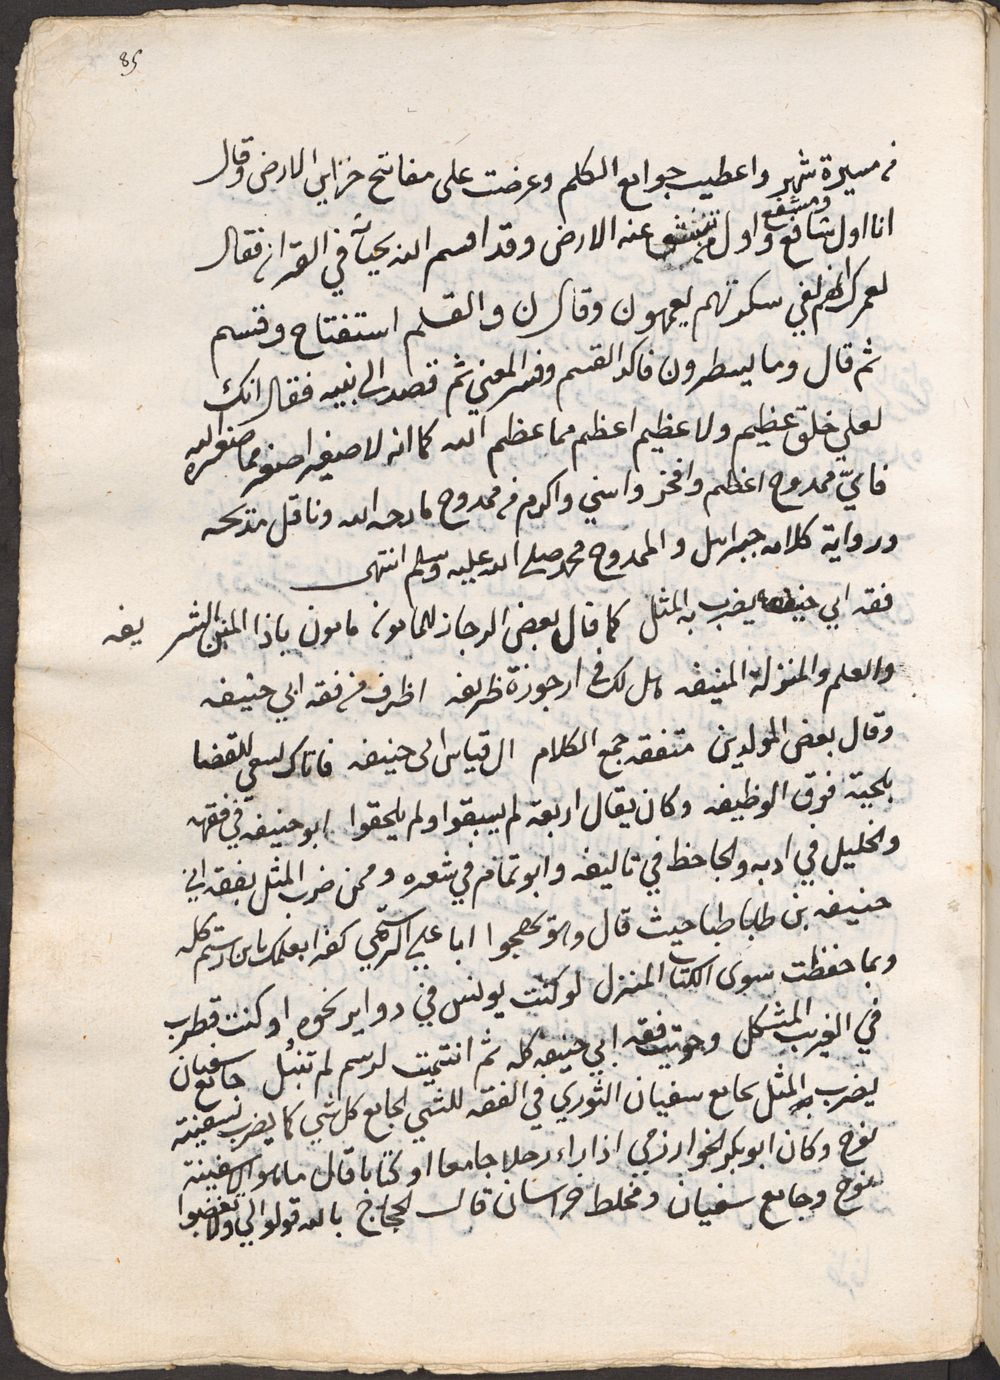 85
من مسيرة شهر واعطيت جوامع الكلم وعرضت على مفاتيح خزاين الارض وقال
انا اول شافع ومشفع واول من تنشق عنه الارض وقد اقسم الله بحياته في القران فقال
لعمرك انهم لفي سكرتهم يعمهون وقال ن والقلم استفتاح وقسم
ثم قال وما يسطرون فاكد القسم وفسر المعني ثم قصد الى نبيه فقال انك
لعلي خلق عظيم ولا عظيم اعظم مما عظم الله كما انه لا صغير اصغر مما صغره الله
فاي ممدوح اعظم وافخر واسني واكرم من ممدوح مادحه الله وناقل مدحه
ورواية كلامه جبرايل والممدوح محمد صلى الله عليه وسلم انتهى
فقه ابي حنيفه يضرب به المثل كما قال بعض الرجاز للمامون مامون ياذا المنن الشريفه
والعلم والمنزلة المنيفه هل لك في ارجوزة ظريفه اظرف من فقه ابي حنيفه
وقال بعض المولدين متفقه جمع الكلام الى قياس ابى حنيفه فاتاك يسعى للقضا
بلحية فوق الوظيفه وكان يقال اربعة لم يسبقوا ولم يلحقوا ابو حنيفه في فقهه
والخليل في ادبه والجاحظ في تاليفه وابو تمام في شعره وممن ضرب المثل بفقه ابي
حنيفه بن طباطبا حيث قال وهو يهجوا ابا علي الرستمي كفرا بعلمك يا بن رستم كله
وبما حفظت سوى الكتاب المنزل لو كنت يونس في دواير نحوه او كنت قطرب
في الغريب المشكل وحويت فقه ابي حنيفه كله ثم انتميت لرستم لم تنبل جامع سفيان
يضرب به المثل بجامع سفيان الثوري في الفقه للشي الجامع كل شي كما يضرب بسفينة
نوح وكان ابو بكر الخوارزمي اذا راء رجلا جامعا او كتابا قال ما هو الا سفينة
نوح وجامع سفيان ومخلط خراسان قال الحجاج بالله قولوا لي ولا تغضبوا